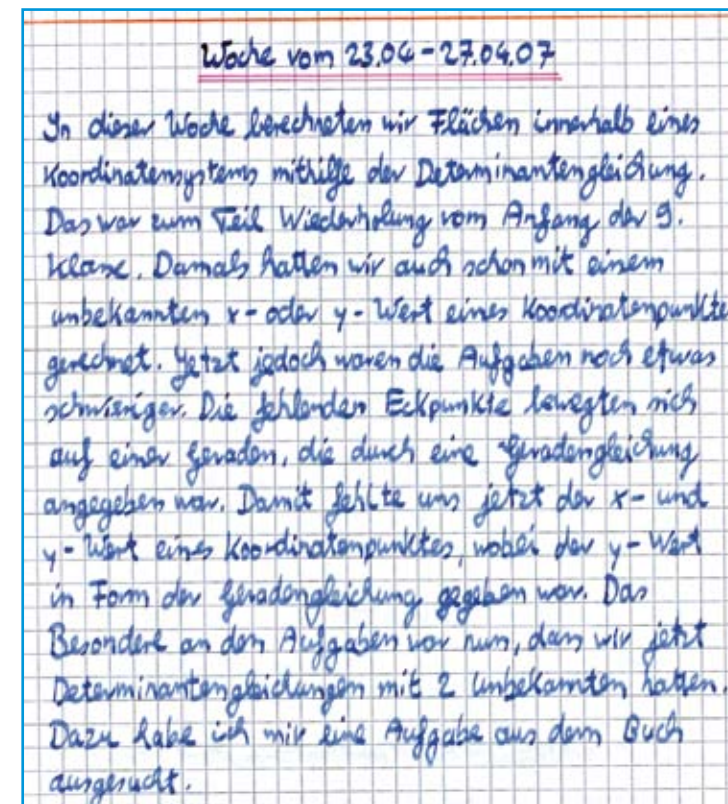 Woche vom 23.04 - 27.04.07
In dieser Woche berechneten wir Flächen innerhalb eines
Koordinatensystems mithilfe der Determinantengleichung.
Das war zum Teil Wiederholung vom Anfang der 9.
Klasse. Damals hatten wir auch schon mit einem
unbekannten x- oder y-Wert eines Koordinatenpunktes
gerechnet. Jetzt jedoch waren die Aufgaben noch etwas
schwieriger. Die fehlenden Eckpunkte bewegten sich
auf einer Geraden, die durch eine Geradengleichung
angegeben war. Damit fehlte uns jetzt der x- und
y-Wert eines Koordinatenpunktes, wobei der y-Wert
in Form der Geradengleichung gegeben war. Das
Besondere an den Aufgaben war nun, dass wir jetzt
Determinantengleichungen mit 2 Unbekannten hatten.
Dazu habe ich mir eine Aufgabe aus dem Buch
ausgesucht.